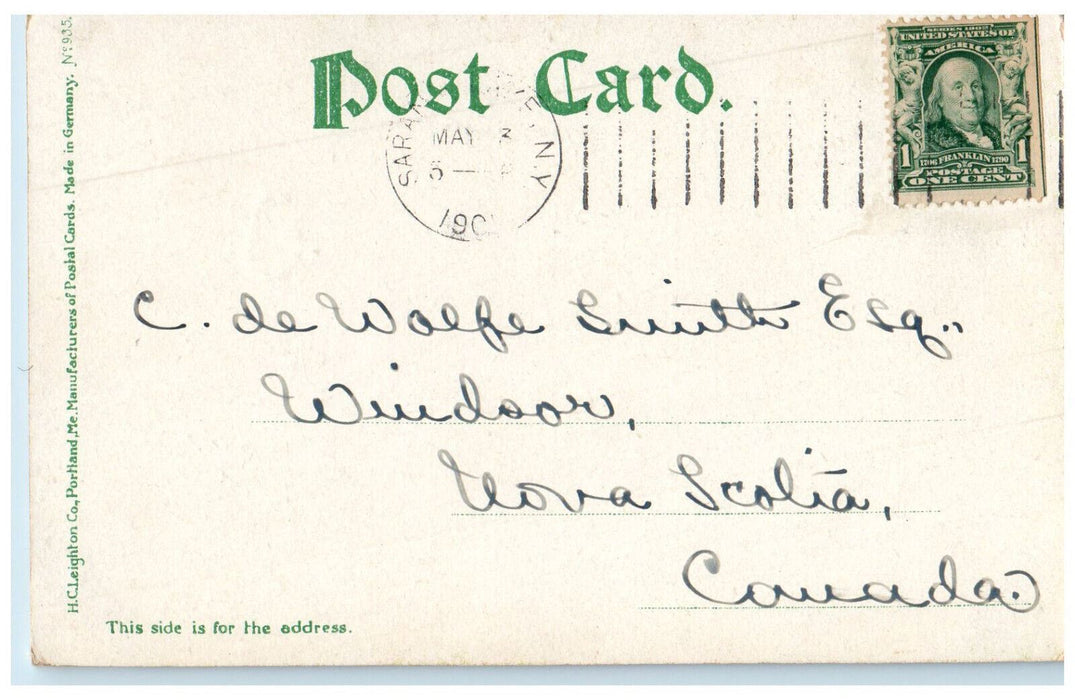 Post Card.
SERIES 1902
UNITED STATES OF
AMERICA
1 1706 FRANKLIN 1790 1
POSTAGE
ONE CENT
N.Y.
MAY 3
5 —
190
C. de Wolfe Smith Esq.,
Windsor,
Nova Scotia,
Canada.
This side is for the address.
H.C.Leighton Co., Portland, Me. Manufacturers of Postal Cards. Made in Germany. Nº 935.